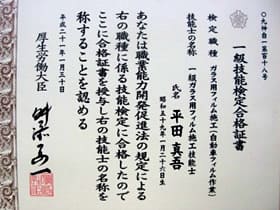 一級技能検定合格証書
検定職種 ガラス用フィルム施工(自動車フィルム作業)
技能士の名称 一級ガラス用フィルム施工技能士
氏名 平田 真吾
昭和五十九年一月二十六日生
あなたは職業能力開発促進法の規定による
右の職種に係る技能検定に合格したので
ここに合格証書を授与し右の技能士の名称を
称することを認める
平成二十一年一月三十日
厚生労働大臣